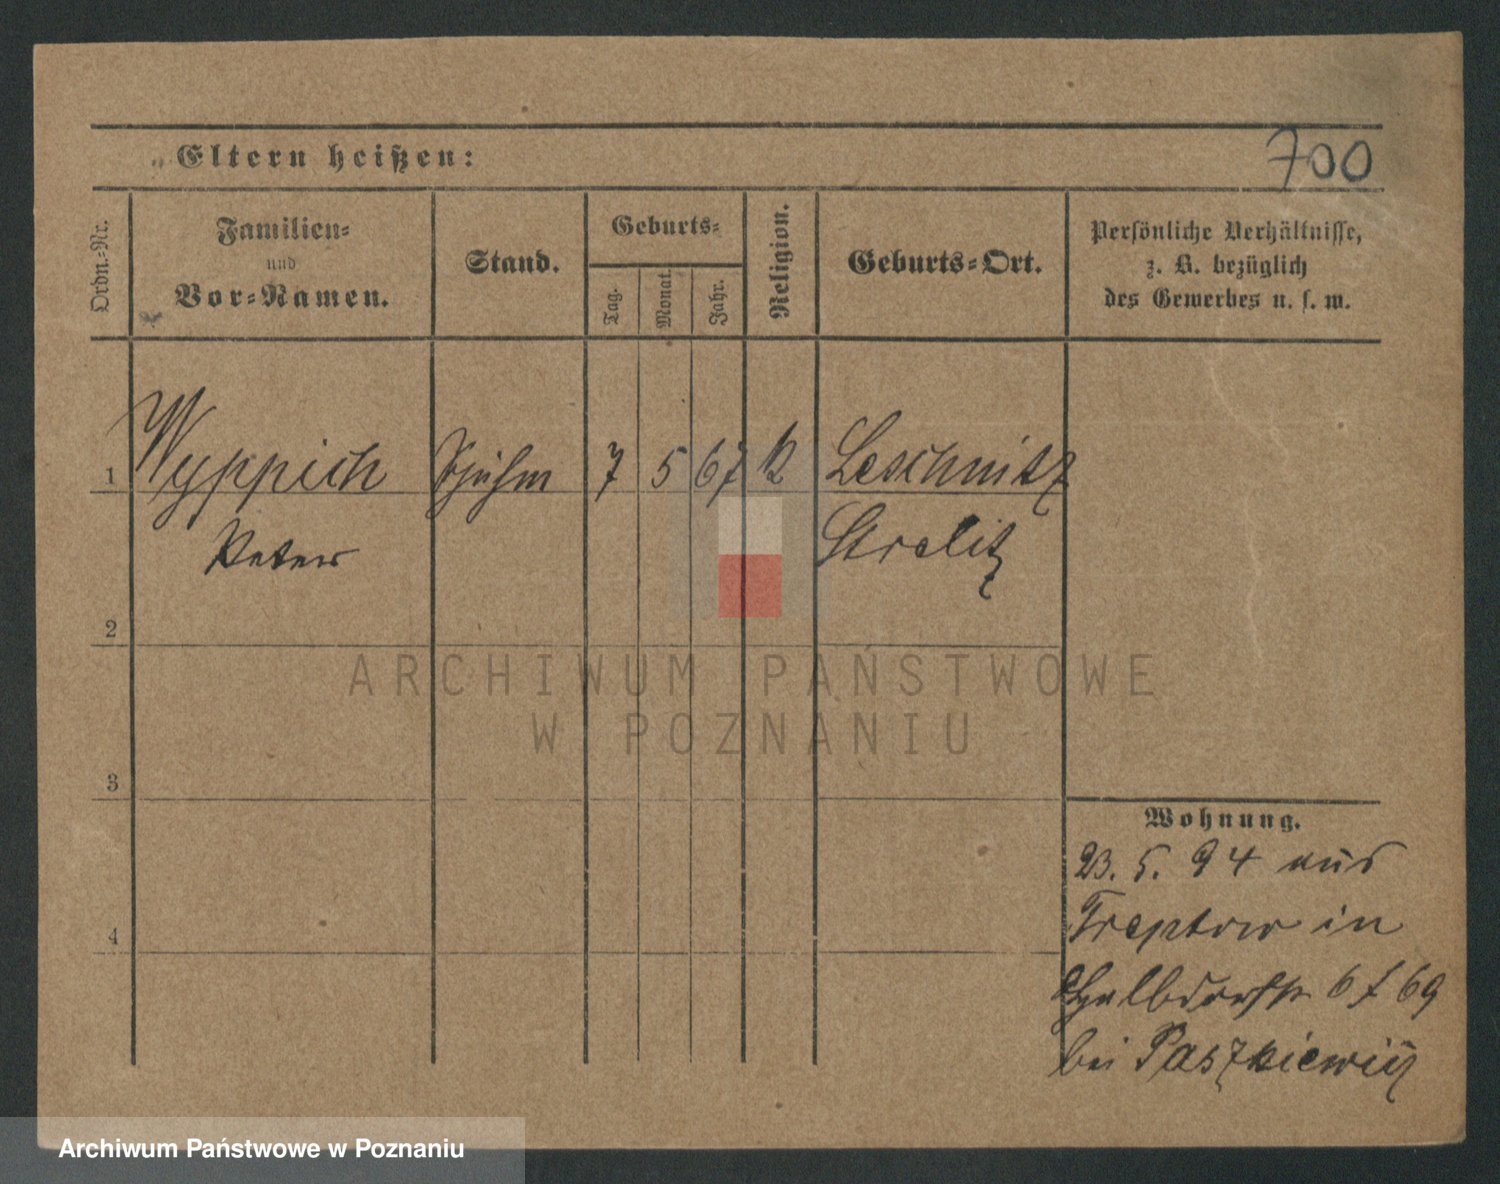 Eltern heißen:
700
Ordn.-Nr.
Familien-
und
Vor-Namen.
Stand.
Geburts-
Tag.
Monat.
Jahr.
Religion.
Geburts-Ort.
Persönliche Verhältnisse,
z. B. bezüglich
des Gewerbes u. s. w.
1 Wyppich 7 5 67 k Leschnitz
Peter Strelitz
2
3
4
Wohnung.
23. 5. 94 aus
Treptow in
Halbdorfstr 6 f 69
bei Paszkiewicz
ARCHIWUM PAŃSTWOWE
W POZNANIU
Archiwum Państwowe w Poznaniu